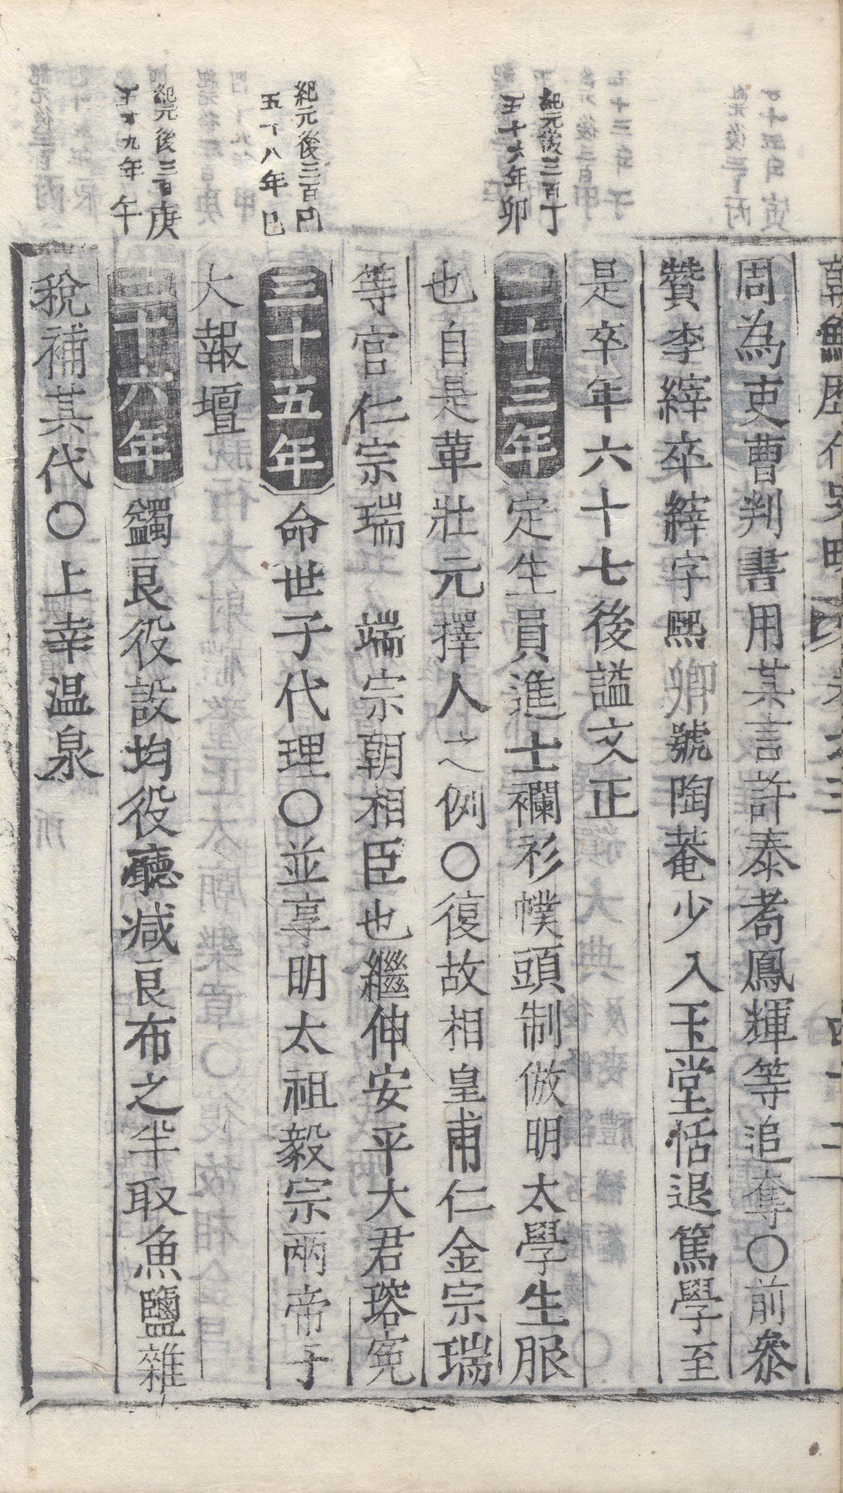 朝鮮歷代史略 卷之三 四十二
周為吏曹判書用其言許泰耉鳳輝等追奪〇前叅
贊李縡卒縡字熙卿號陶菴少入玉堂恬退篤學至
是卒年六十七後謚文正
紀元後三百丁
五十六年卯
二十三年定生員進士襴衫幞頭制倣明太學生服
也自是草壯元擇人之例〇復故相皇甫仁金宗瑞
等官仁宗瑞 端宗朝相臣也繼伸安平大君瑢寃
紀元後三百己
五十八年巳
三十五年命世子代理〇並享明太祖毅宗兩帝于
大報壇
紀元後三百庚
五十九年午
二十六年蠲良役設均役廳减良布之半取魚鹽雜
稅補其代〇上幸温泉